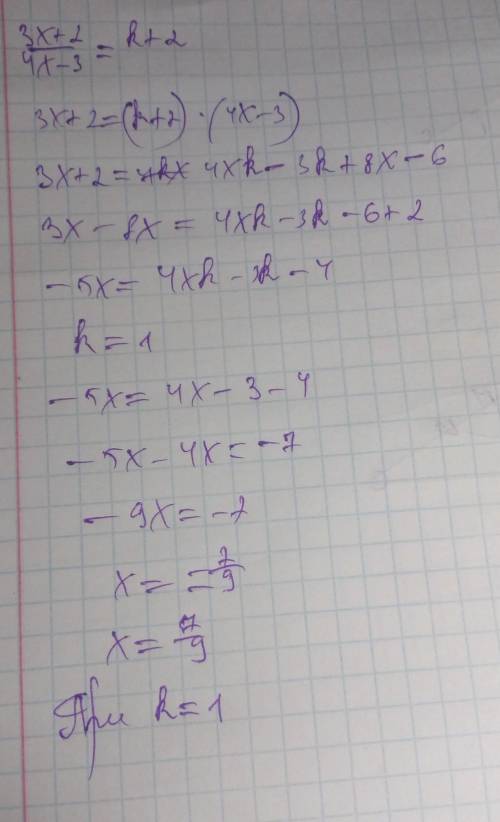 (3x+2)/(4x-3) = k+2
3x+2=(k+2)·(4x-3)
3x+2= 4xk-3k+8x-6
3x-8x = 4xk-3k-6+2
-5x= 4xk-3k-4
k=1
-5x=4x-3-4
-5x-4x=-7
-9x=-7
x= -7/-9
x= 7/9
При k=1